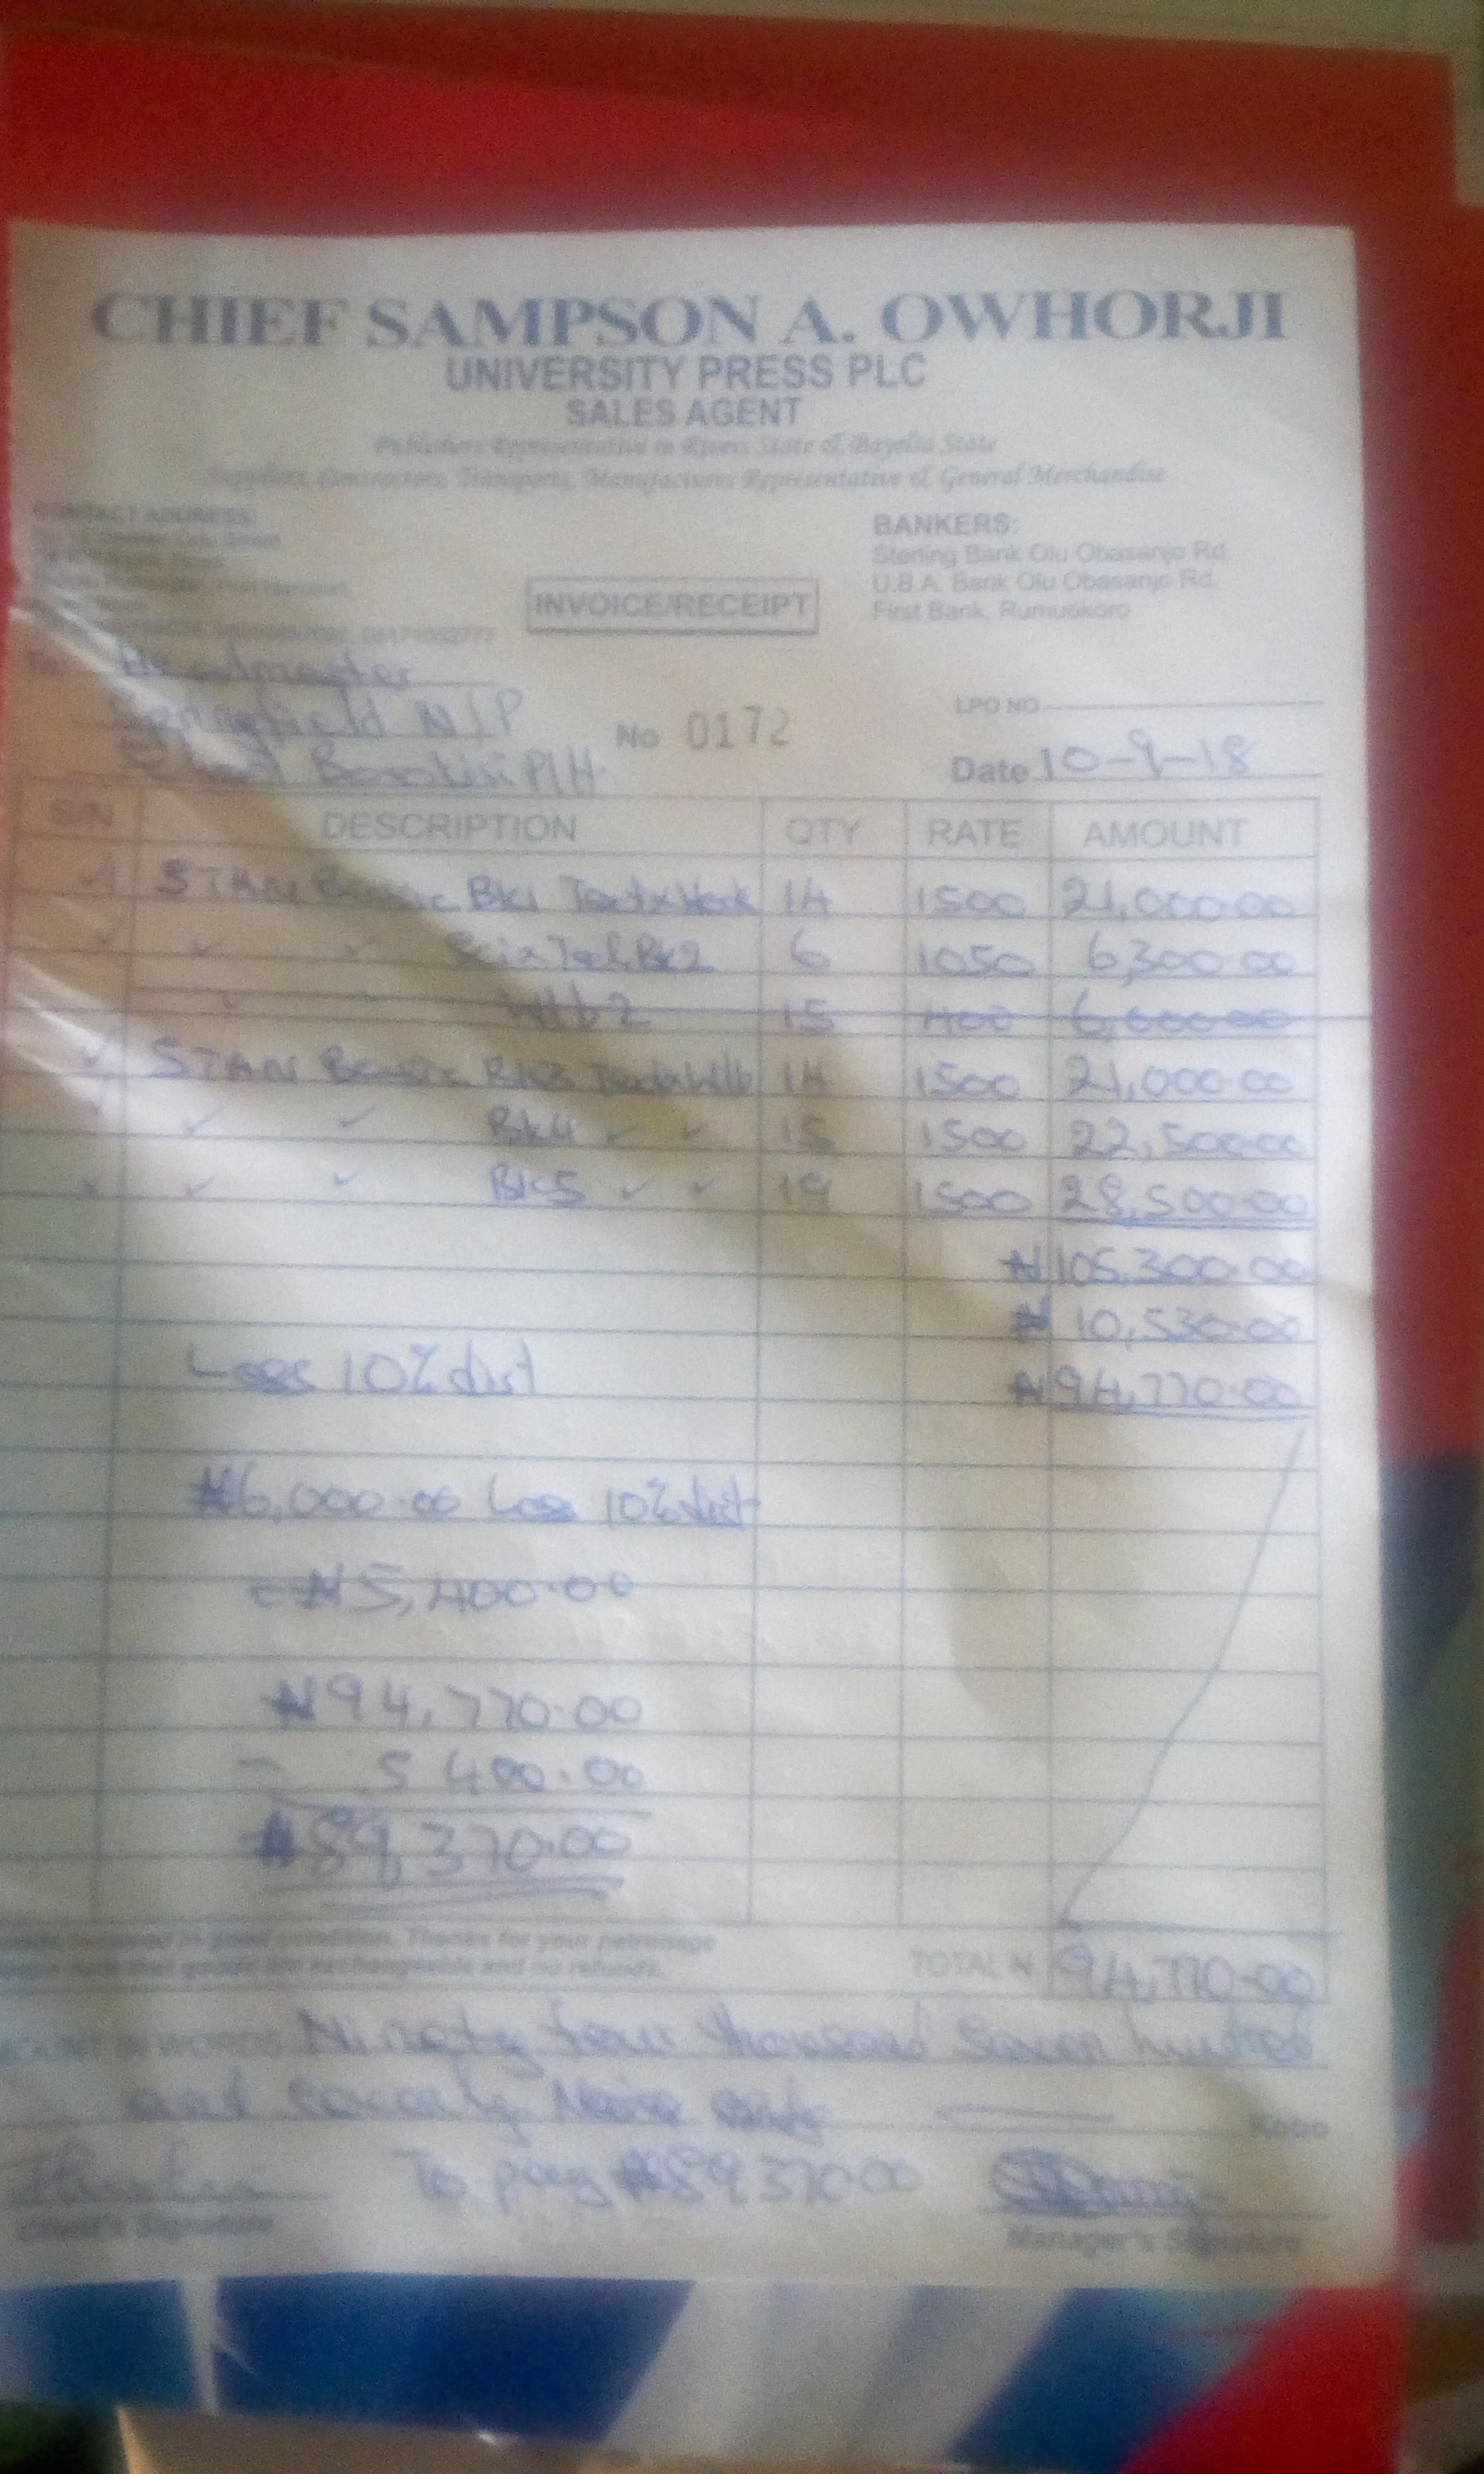 CHIEF SAMPSON A. OWHORJI
UNIVERSITY PRESS PLC
SALES AGENT
Publishers Representative in Rivers State & Bayelsa State
Suppliers, Contractors, Transports, Manufactures Representative & General Merchandise
CONTACT ADDRESS:
BANKERS:
Sterling Bank Olu Obasanjo Rd.
U.B.A. Bank Olu Obasanjo Rd.
First Bank, Rumuokoro
INVOICE/RECEIPT
To: Headmaster
Springfield N/P
P/H.
No 0172
LPO NO
Date 10-9-18
S/N DESCRIPTION QTY RATE AMOUNT
STAN Bk1 14 1500 21,000.00
Bk2 6 1050 6,300.00
W/b 2 15 400 6,000.00
STAN Bk3 14 1500 21,000.00
Bk4 15 1500 22,500.00
Bk5 19 1500 28,500.00
₦105,300.00
₦ 10,530.00
Less 10% dist ₦94,770.00
₦6,000.00 Less 10% dist
= ₦5,400.00
₦94,770.00
- 5 400.00
₦89,370.00
received in good condition. Thanks for your patronage
note that goods are exchangeable and no refunds.
TOTAL ₦ 94,770.00
IN WORDS Ninety four thousand Seven hundred
and Seventy Naira only Kobo
To pay ₦89370.00
Client's Signature
Manager's Signature